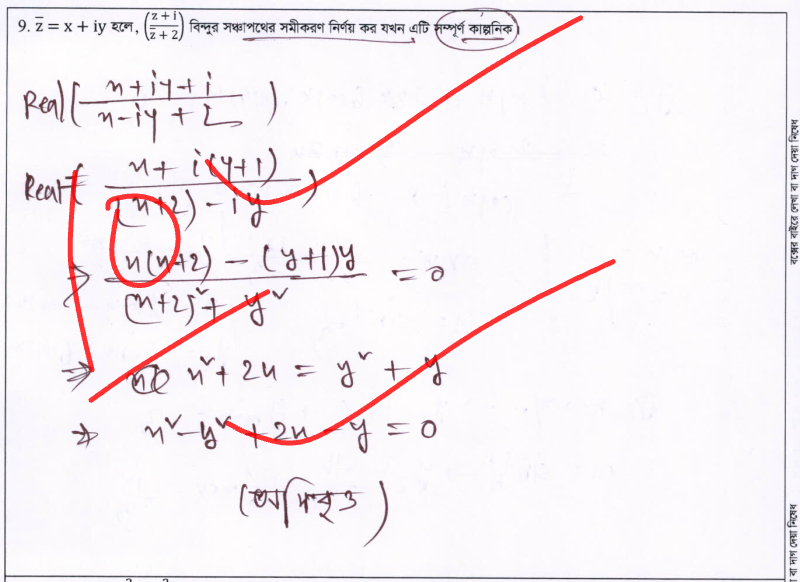 9. z̅ = x + iy হলে, ((z + i)/(z̅ + 2)) বিন্দুর সঞ্চাপথের সমীকরণ নির্ণয় কর যখন এটি সম্পূর্ণ কাল্পনিক।
Real ( (x + iy + i)/(x - iy + 2) )
Real ( (x + i(y+1))/((x+2) - iy) )
⇒ (x(x+2) - (y+1)y)/((x+2)² + y²) = 0
⇒ x² + 2x = y² + y
⇒ x² - y² + 2x - y = 0
(অধিবৃত্ত)
বক্সের বাইরে লেখা বা দাগ দেয়া নিষেধ
বা দাগ দেয়া নিষেধ